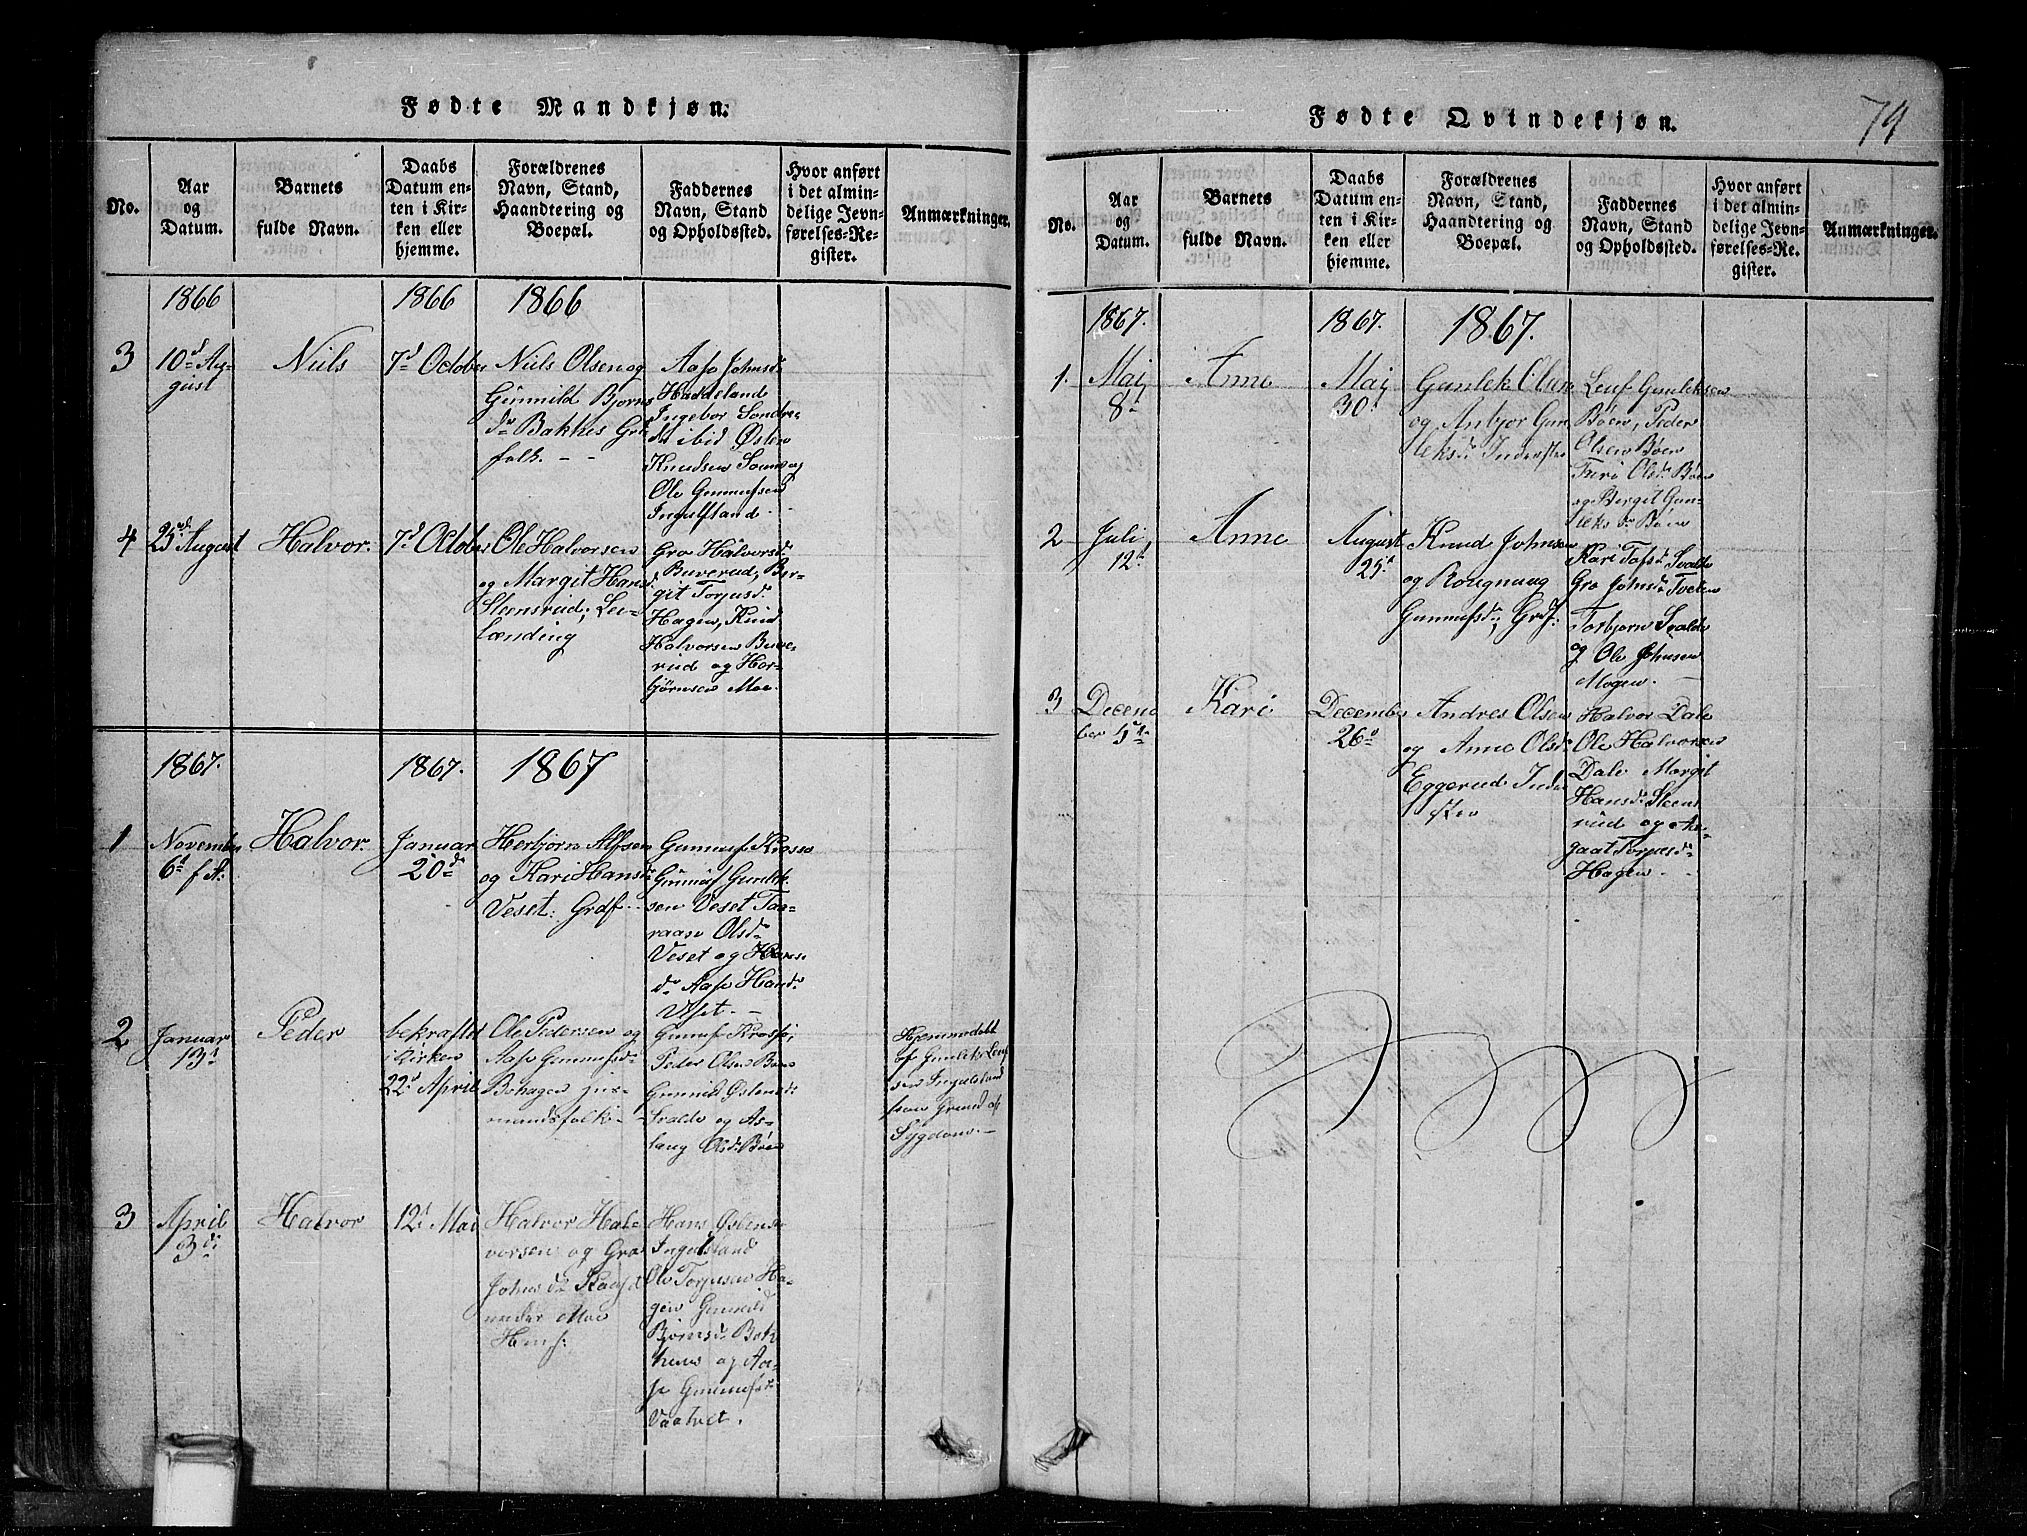 Fødte Mandkjøn.
No.
Aar
og
Datum.
Barnets
fulde Navn.
Daabs
Datum en-
ten i Kir-
ken eller
hjemme.
Forældrenes
Navn, Stand,
Haandtering og
Boepæl.
Faddernes
Navn, Stand
og Opholdssted.
Hvor anført
i det almin-
delige Jevn-
førelses-Re-
gister.
Anmærkninger.
1866
1866
1866
3
10d Au-
gust
Niels
7d October
Niels Olsen og
Gunnild Bjørns
dr Bakkes Grd
folk.
Aase Johnsd.
Haddeland
Ingebor Sondre
dr ibid Østen
Knudsen og
Ole Gunnufsen
Ingulfland
4
25d August
Halvor.
7d October
Ole Halvorsen
og Margit Hans
Steensrud, Lei-
lænding
Gro Halvorsd.
Buverud, Ber-
git Torjusd.
Hagen, Knud
Halvorsen Buve-
rud og Her-
bjørnsen Moe.
1867.
1867.
1867
1
November
6d f. A.
Halvor.
Januar
20d
Herbjørn Alfsen
og Kari Hansd.
Veset. Grdf.
Gunnuf Krosso
Gunnuf Gunlek-
sen Veset Taa-
raase Olsd.
Veset og
dr Aase Hansd.
Veset.
2
Januar
13d
Peder
bekræftet
i Kirken
22d April
Ole Pedersen og
Aase Gunnufsd.
Bøhagen
mandsfolk.
Gunuf Krossø,
Peder Olsen Bøen
Gunnild Østensd.
Svalde og As-
laug Olsd. Bøen
Hjemmedøbt
af Gunlek Leuf
sen Ingulsland
paa Grund af
Sygdom.
3
April
3d
Halvor
12d Mai
Halvor Hal-
vorsen og Gro
Johnsd.
under Moe
Huusf.
Hans Østense
Ingulsland
Ole Torjusen Ha-
gen Gunnild
Bjørnsd. Bak
kens og Aa-
se Gunnufsd.
Vaatvet.
Fødte Qvindekjøn.
79
No.
Aar
og
Datum.
Barnets
fulde Navn.
Daabs
Datum en-
ten i Kir-
ken eller
hjemme.
Forældrenes
Navn, Stand,
Haandtering og
Boepæl.
Faddernes
Navn, Stand
og Opholdssted.
Hvor anført
i det almin-
delige Jevn-
førelses-Re-
gister.
Anmærkninger.
1867.
1867.
1867.
1.
Maj
8d
Anne
Maj
30d
Gunlek Olsen
og Anbjor Gun
leksd. Inderster
Leuf Gunleksen
Bøen, Peder
Olsen Bøen
Turi Olsd. Bøen
og Birgit Gun-
leks dr Bøen
2
Juli
12d
Anne
August
25d
Knud Johnsen
og Rougnoug
Gunnufsd., Grdf:
Kari Tafsd. Svalde
Gro Johnsd. Tveten
Torbjorn Svalde
og Ole Johnsen
Mogen.
3
Decem
ber 5te
Kari
December
26d
Andres Olsen
og Anne Olsd.
Eggerud Inder
ster
Halvor Dale
Ole Halvorsen
Dale Margit
Hansd. Steens
rud og Aa-
gaat Torjusd.
Hagen.